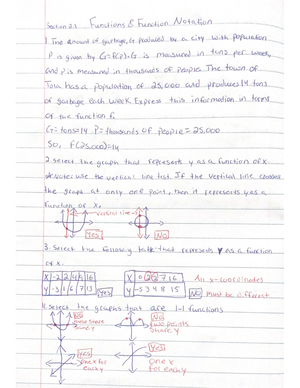 Section 2.1 Functions & Function Notation
1. The amount of garbage, G produced by a city with population
P is given by G=f(p). G is measured in tons per week,
and P is measured in thousands of people. The town of
Tola has a population of 25,000 and produces 14 tons
of garbage each week. Express this information in terms
of the function f.
G=tons=14 P=thousands of people=25,000
So, F(25,000)=14
2. Select the graph that represents y as a function of x.
use the vertical line test. If the vertical line crosses
the graph at only one point, then it represents y as a
function of x.
vertical line
Yes No
3. Select the following table that represents y as a function
of x.
X -2 2 4 16 X 0 2 2 7 16 All x-coordinates
Y -3 1 6 7 13 Yes Y -5 3 4 8 15 No must be different
4. Select the graphs that are 1-1 functions
No No
share y two points
share y
Yes Yes
one x for one x
each y for each y